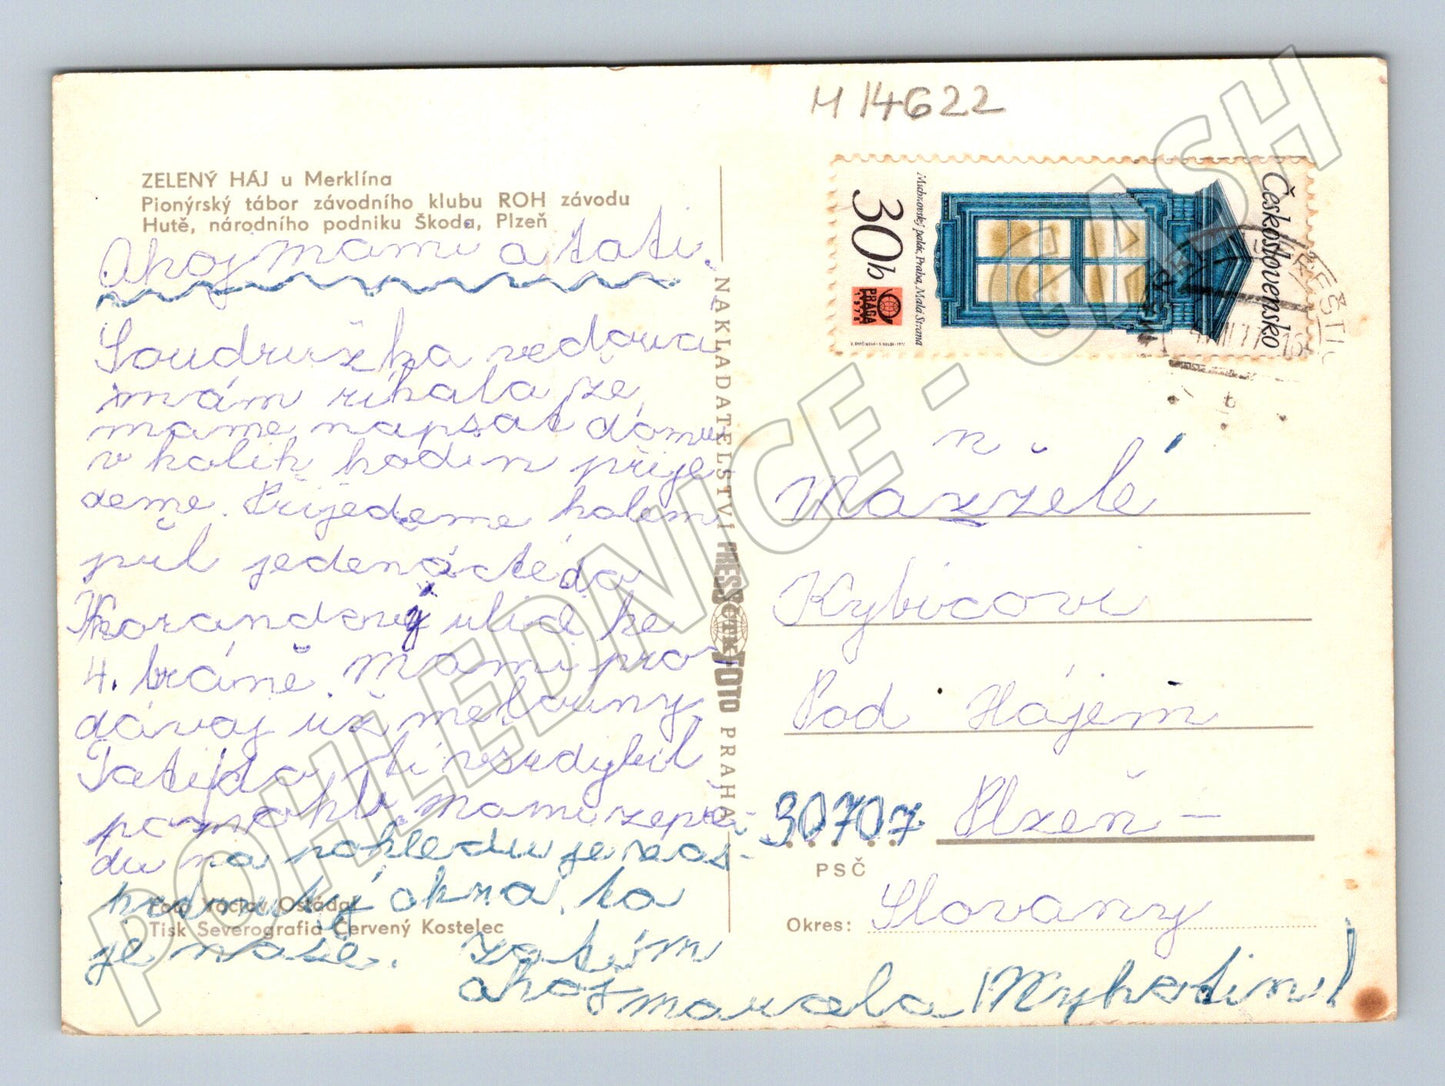 M 14622
ZELENÝ HÁJ u Merklína
Pionýrský tábor závodního klubu ROH závodu
Hutě, národního podniku Škoda, Plzeň
Ahoj mami a tati.
Soudružka vedoucí
nám říkala že
máme napsat domu
v kolik hodin přije-
deme. Přijedeme kolem
půl jedenácté do
Korandovy ulice ke
4. bráně. Mami pro
dávaj už melouny
Tati, ti ryby
mami zepře-
du na pohledu je
okna to
je naše. zatím
ahoj Marcela
Foto Václav
Tisk Severografia Červený Kostelec
NAKLADATELSTVÍ PRESSFOTO PRAHA
Československo
30h
Praha, Malá Strana
PRAGA
1978
PŘEŠTICE
Manželé
Kybicovi
Pod Hájem
30707 Plzeň –
PSČ
Okres: Slovany
POHLEDNICE - GASH